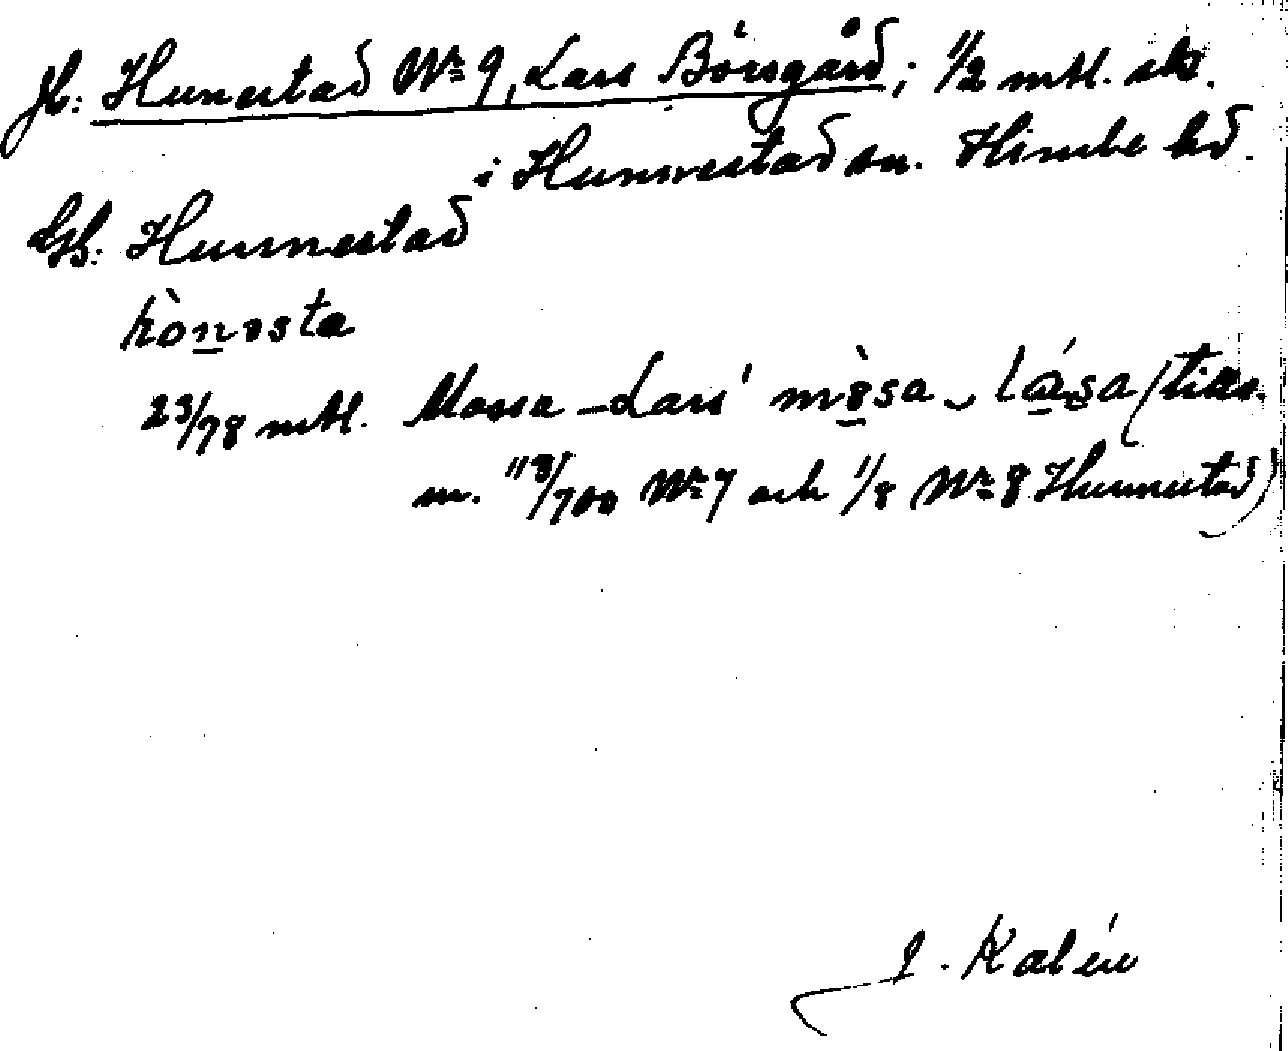 Jb: Hunestad Nr 9, Lars Börsgård; 1/2 mtl. sk.
i Hunnestad sn. Himle hd.
Gb: Hunnestad
hònɘsta
23/78 mtl. Mossa-Lars' mɵ̀sa lása (tills.
m. 113/700 Nr 7 och 1/8 Nr 8 Hunnestad)
J. Kalén